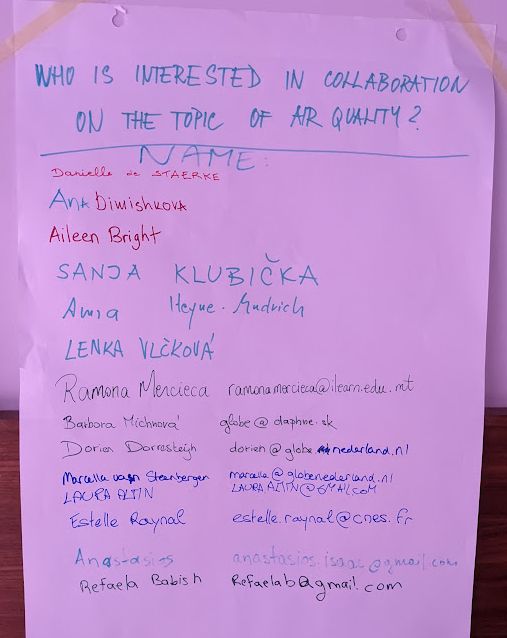 WHO IS INTERESTED IN COLLABORATION
ON THE TOPIC OF AIR QUALITY?
NAME:
Danielle de STAERKE
Ana Dimishkova
Aileen Bright
SANJA KLUBIČKA
Anna Heyne-Mudrich
LENKA VLČKOVÁ
Ramona Mercieca ramonamercieca@ilearn.edu.mt
Barbora Michnová globe@daphne.sk
Dorien Dorresteijn dorien@globenederland.nl
Marcella van Steenbergen marcella@globenederland.nl
LAURA ALTIN LAURA.ALTIN@GMAIL.COM
Estelle Raynal estelle.raynal@cnes.fr
Anastasios anastasios.isaac@gmail.com
Refaela Babish Refaelab@gmail.com